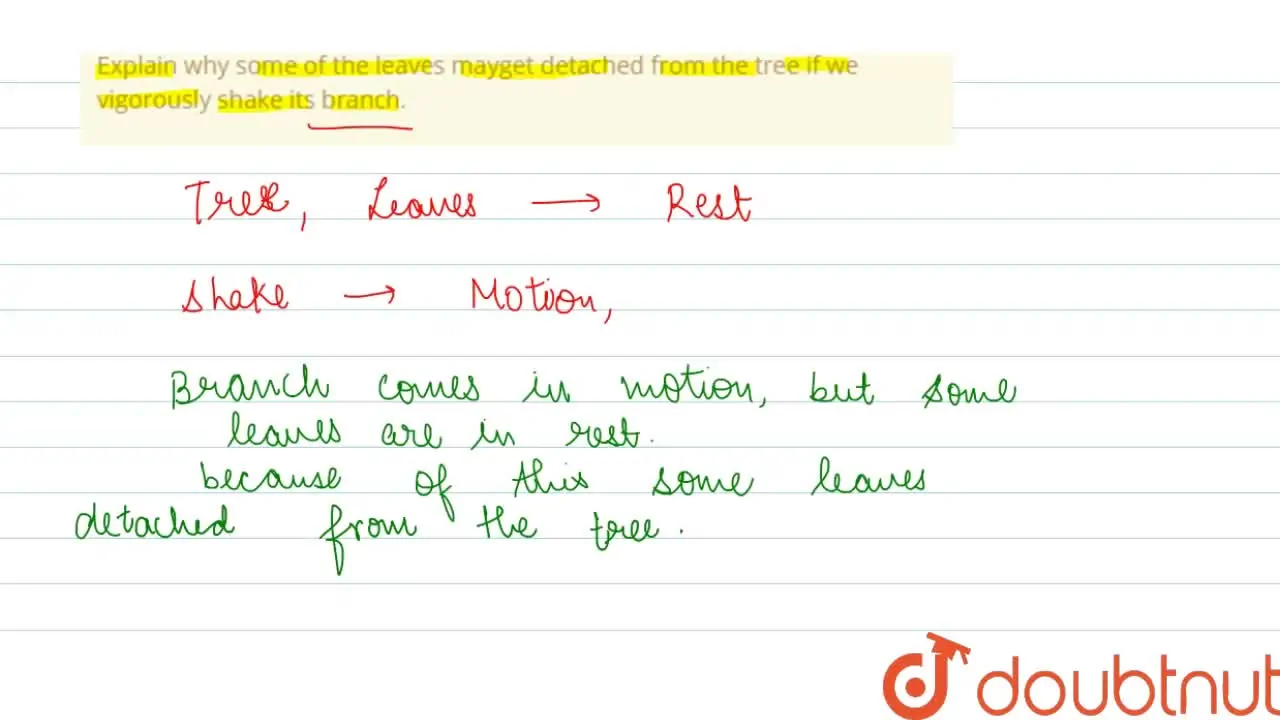 Explain why some of the leaves mayget detached from the tree if we
vigorously shake its branch.
Tree, Leaves → Rest
Shake → Motion,
Branch comes in motion, but some
leaves are in rest.
because of this some leaves
detached from the tree.
doubtnut